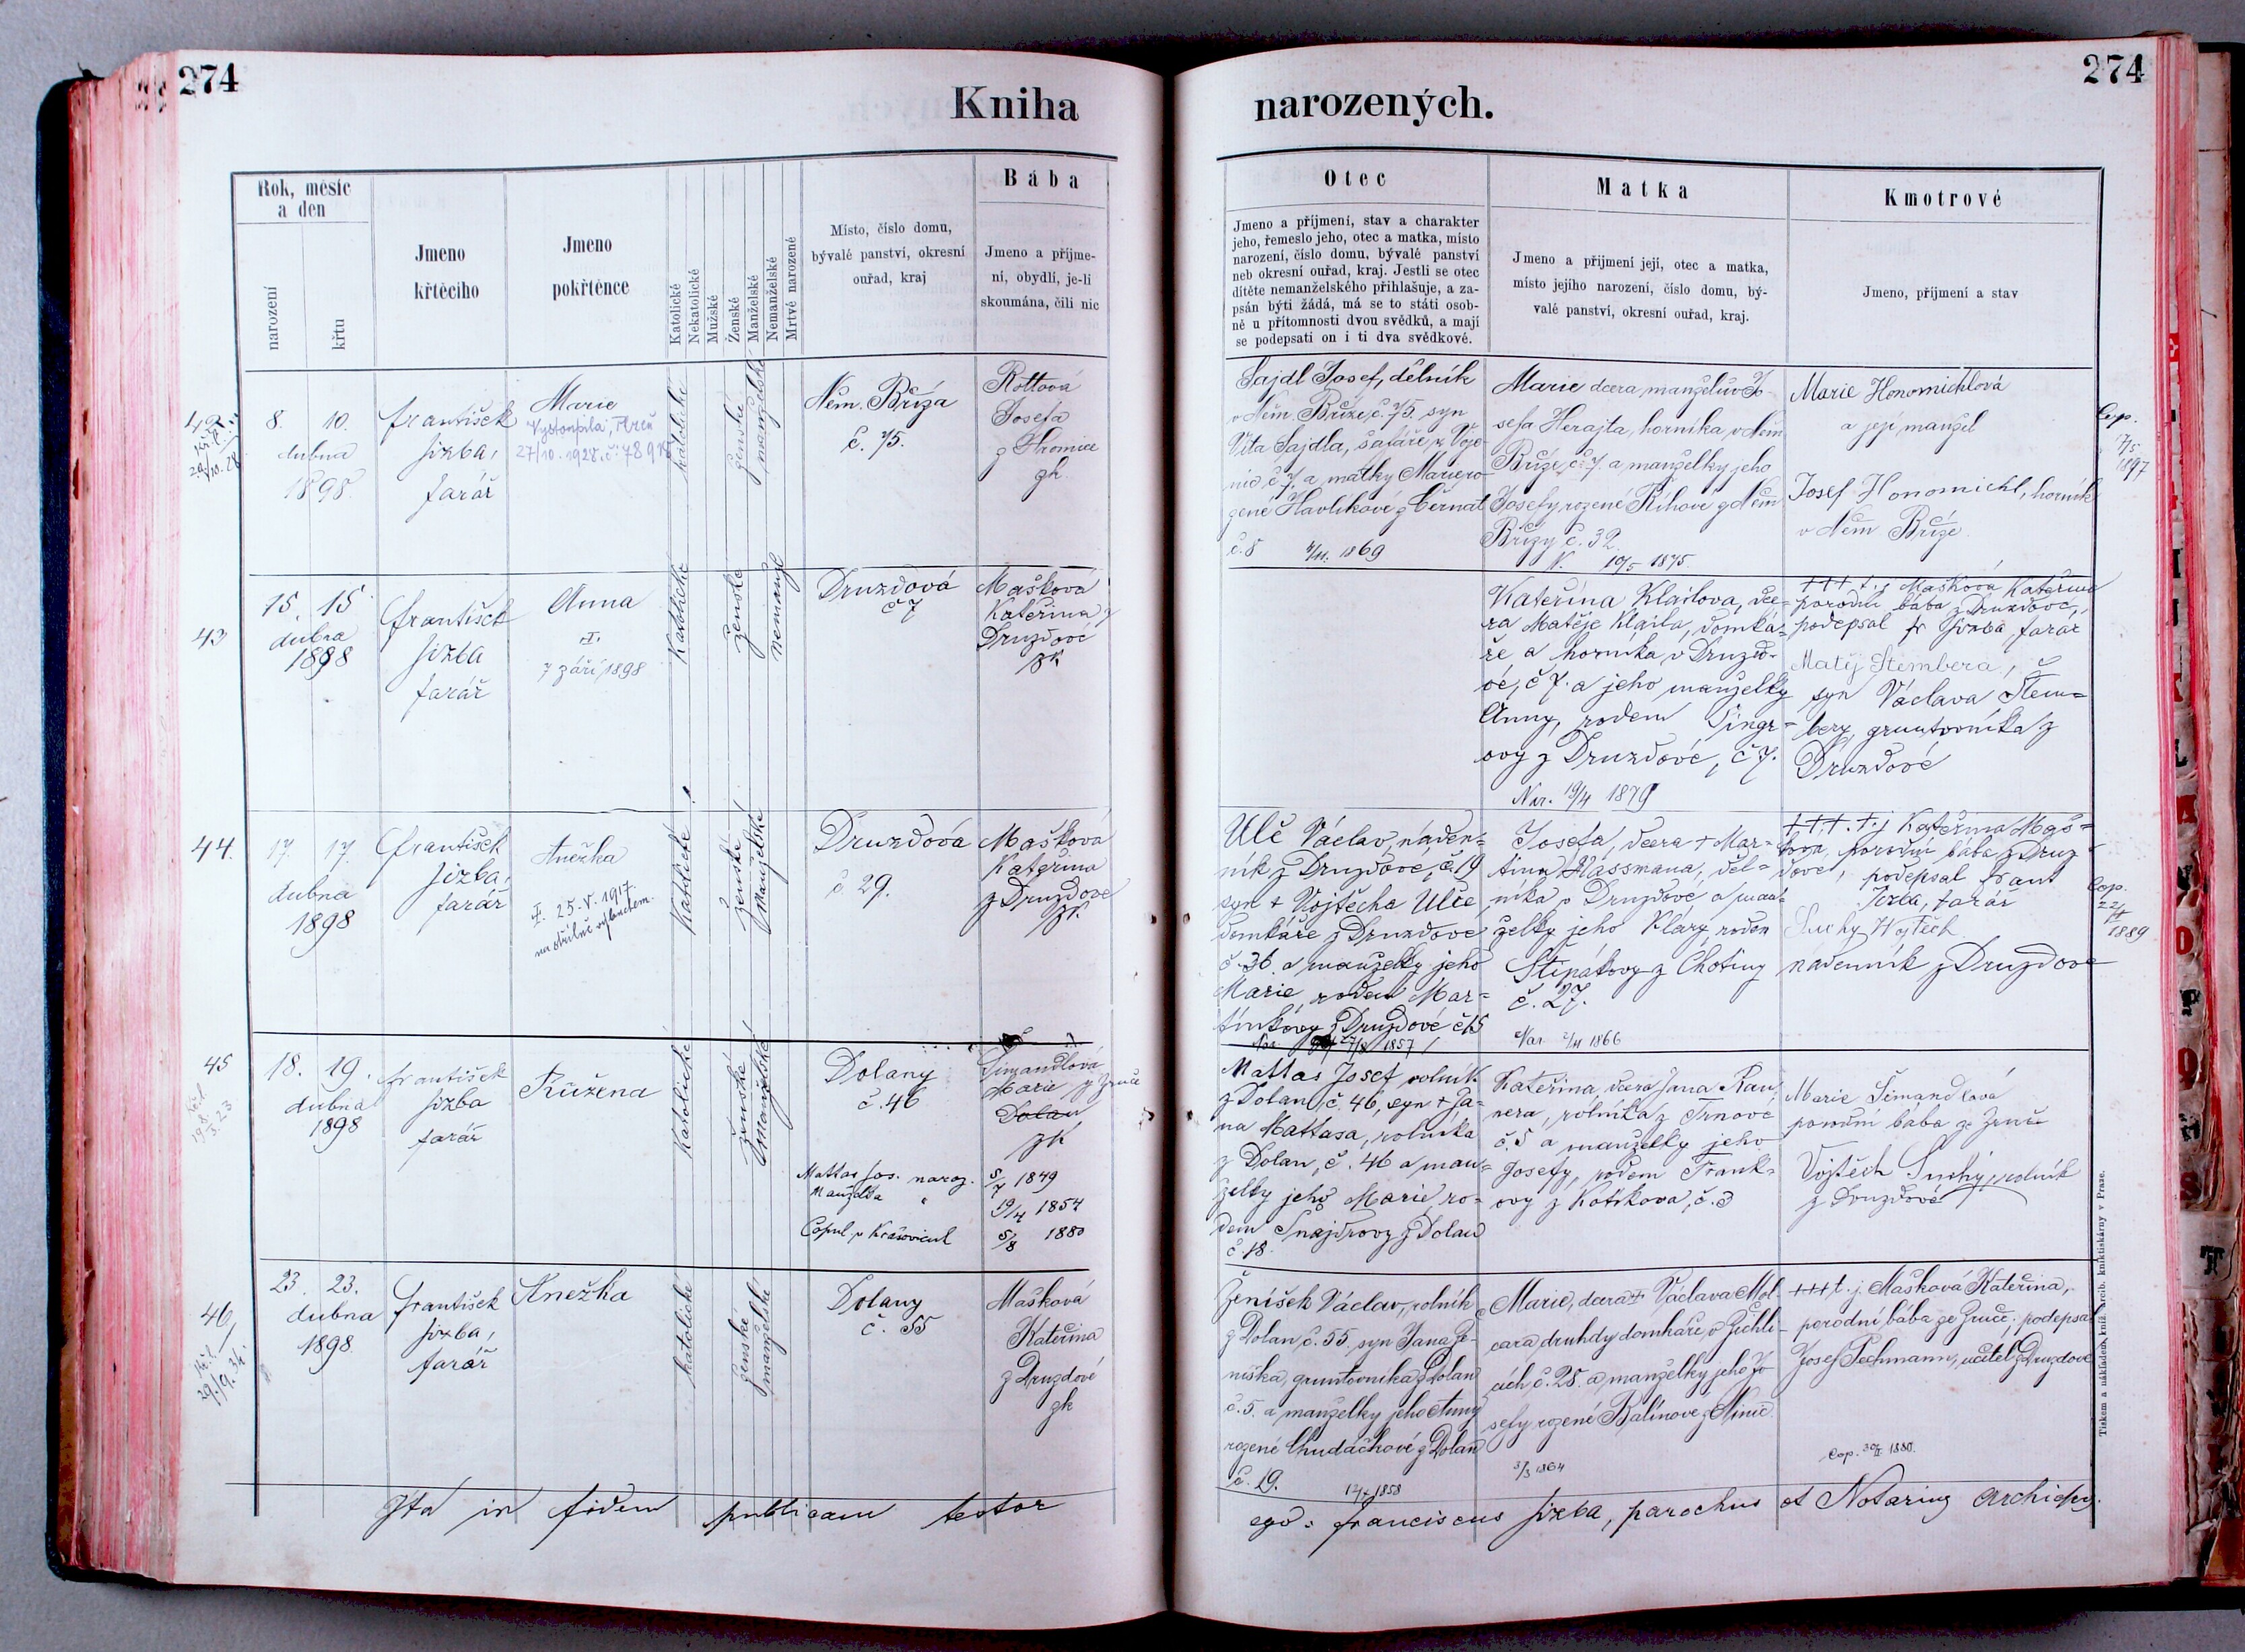 274
Kniha
narozených.
274
Rok, měsíc
a den
narození
křtu
Jmeno
křtěcího
Jmeno
pokřtěnce
Katolické
Nekatolické
Mužské
Ženské
Manželské
Nemanželské
Mrtvé narozené
Místo, číslo domu,
bývalé panství, okresní
ouřad, kraj
Bába
Jmeno a příjme-
ní, obydlí, je-li
skoumána, čili nic
Otec
Jmeno a příjmení, stav a charakter
jeho, řemeslo jeho, otec a matka, místo
narození, číslo domu, bývalé panství
neb okresní ouřad, kraj. Jestli se otec
dítěte nemanželského přihlašuje, a za-
psán býti žádá, má se to státi osob-
ně u přítomnosti dvou svědků, a mají
se podepsati on i ti dva svědkové.
Matka
Jmeno a příjmení její, otec a matka,
místo jejího narození, číslo domu, bý-
valé panství, okresní ouřad, kraj.
Kmotrové
Jmeno, příjmení a stav
42
8. 10.
dubna
1898.
František
Jizba,
farář
Marie
Vystoupila, Plzeň
27/10.1928. č.
katolické
ženské
manželské
Něm. Bříza
č. 75.
Rottová
Josefa
z Hromice
zk.
Sajdl Josef, dělník
v Něm. Bříze, č. 75. syn
Víta Sajdla, šafáře, z Voje-
nic č. 7. a matky Marie ro-
zené Havlíkové z Černat
č. 8 1869
Marie dcera manželův Jo-
sefa Herajta, horníka, v Něm
Bříze, č. 7. a manželky jeho
Josefy, rozené Říhové z Něm.
Břízy č. 32.
N. 10/5 1875.
Marie Honomichlová
a její manžel
Josef Honomichl, horník
v Něm Bříze.
Cop.
17/5
1897
43
15. 15.
dubna
1898
František
Jizba
farář
Anna
7 září 1898
Katolické
ženské
nemanž
Druzdová
č 7
Mašková
Kateřina z
Druzdové
zk
Kateřina Klailova, dce-
ra Matěje Klaila, domká-
ře, a horníka, v Druzd-
ové, č 7. a jeho manželky
Anny, rodem Singr-
ovy z Druzdové, č 7.
Nar. 19/4 1879
+++ t. j. Mašková Kateřina
porodní bába z Druzdové,
podepsal fr Jizba, farář
Matěj Štembera,
syn Václava Štem-
bery, gruntovníka z
Druzdové
44.
17. 17.
dubna
1898
František
Jizba,
farář
Anežka
25.V.1917.
Katolické
ženské
Manželské
Druzdová
č 29.
Mašková
Kateřina
z Druzdové
zk.
Ulč Václav, náden-
ník z Druzdové, č. 19
syn + Vojtěcha Ulče,
domkáře z Druzdové
č. 36. a manželky jeho
Marie, rodem Mar-
tínkovy z Druzdové č 15
Nar. 1857
Josefa, dcera + Mar-
tina Hassmana, děl-
níka v Druzdové a man-
želky jeho Kláry, rodem
Štipákovy z Chotiny
č. 27.
Nar. 1866
+++. t. j Kateřina Maš-
kova, porodní bába z Druz-
dové, podepsal Frant
Jizba, farář
Suchý Wojtěch
nádenník z Druzdové
Cop.
22/
1889
45
18. 19.
dubna
1898
František
Jizba
farář
Růžena
Katolické
ženské
Manželské
Dolany
č. 46
Šimandlová
Marie z Zruče
Dolan
zk
Mattas Jos. naroz. 5/7 1849
Manželka " 19/4 1854
Copul. v Krašovicích 5/8 1880
Mattas Josef rolník
z Dolan, č. 46, syn + Ja-
na Mattasa, rolníka
z Dolan, č. 46 a man-
želky jeho Marie, ro-
dem Šnajdrovy z Dolan
č. 18.
Kateřina, dcera Jana Rau-
nera, rolníka z Trnove
č. 5 a manželky jeho
Josefy, rodem Frank-
ovy z Kotikova, č. 3
Marie Šimandlová
porodní bába ze Zruče
Vojtěch Suchý, rolník
z Druzdové
46,
29/9.34.
23. 23.
dubna
1898.
František
Jizba,
farář
Anežka
katolické
ženské
manželské
Dolany
č. 55
Mašková
Kateřina
z Druzdové
zk
Ženíšek Václav, rolník
z Dolan, č. 55. syn Jana Že-
níška, gruntovníka z Dolan
č. 5. a manželky jeho Anny
rozené Chudáčkové z Dolan
č. 19. 1858
Marie, dcera + Václava Mol-
cara, druhdy domkáře, v Žichli-
cích, č. 28. a manželky jeho Jo-
sefy rozené Balínove z Ninic
3/3 1864
+++ t. j. Mašková Kateřina,
porodní bába ze Zruče; podepsal
Josef Pechmann, učitel z Druzdové
Cop. 1880.
Ita in fidem publicam testor
ego: Franciscus Jizba, parochus et Notarius archiepp.
Tiskem a nákladem kníž. arcib. knihtiskárny v Praze.